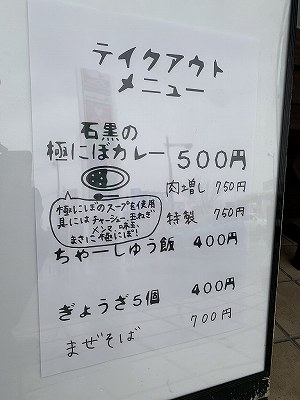 テイクアウト
メニュー
石黒の
極にぼカレー 500円
肉増し 750円
極にぼのスープを使用
具にはチャーシュー、玉ねぎ
メンマ、味玉、
まさに極にぼし!
特製 750円
ちゃーしゅう飯 400円
ぎょうざ5個 400円
まぜそば 700円